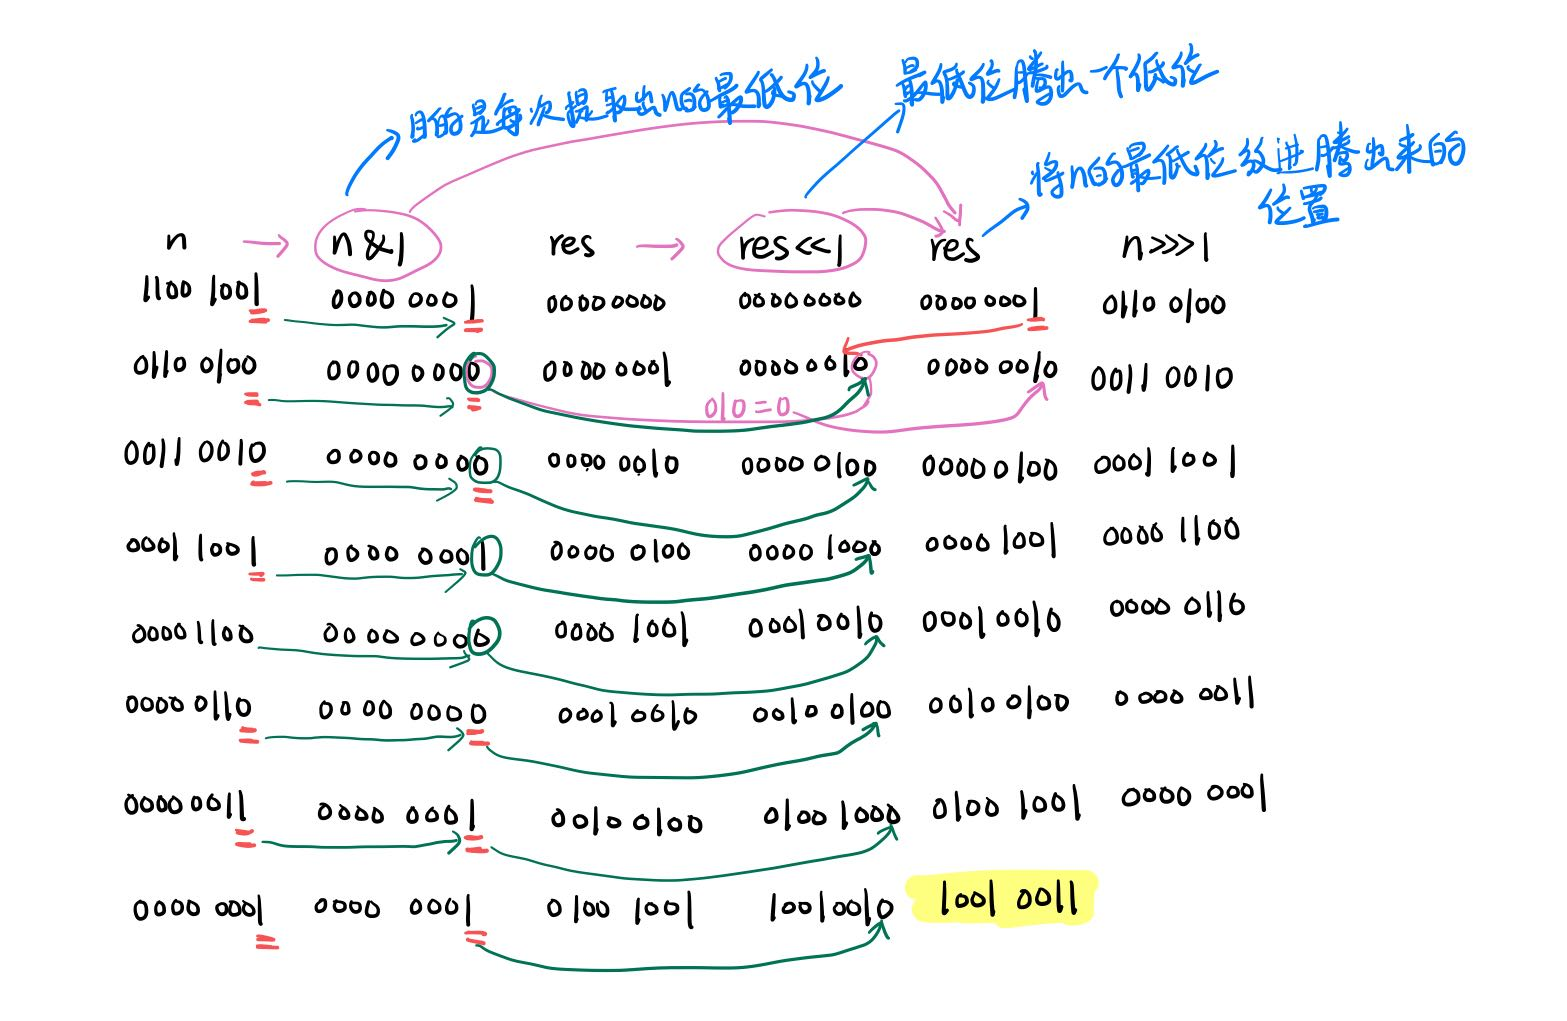 目的是每次提取出n的最低位
最低位腾出一个低位
将n的最低位放进腾出来的
位置
n n&1 res res<<1 res n>>>1
1100 1001 0000 0001 0000 0000 0000 0000 0000 0001 0110 0100
0110 0100 0000 0000 0000 0001 0000 0010 0000 0010 0011 0010
0|0=0
0011 0010 0000 0000 0000 0010 0000 0100 0000 0100 0001 1001
0001 1001 0000 0001 0000 0100 0000 1000 0000 1001 0000 1100
0000 1100 0000 0000 0000 1001 0001 0010 0001 0010 0000 0110
0000 0110 0000 0000 0001 0010 0010 0100 0010 0100 0000 0011
0000 0011 0000 0001 0010 0100 0100 1000 0100 1001 0000 0001
0000 0001 0000 0001 0100 1001 1001 0010 1001 0011